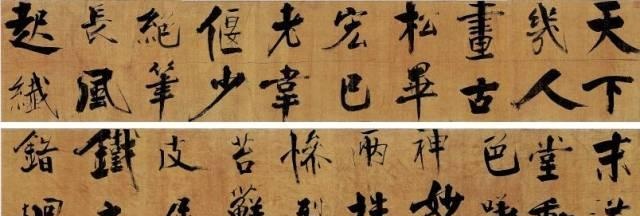 天下
幾人
畫古
松畢
宏已
老韋
偃少
絕筆
長風
起纖
末
堂
色
神妙
兩株
慘裂
苔蘚
皮
鐵
錯